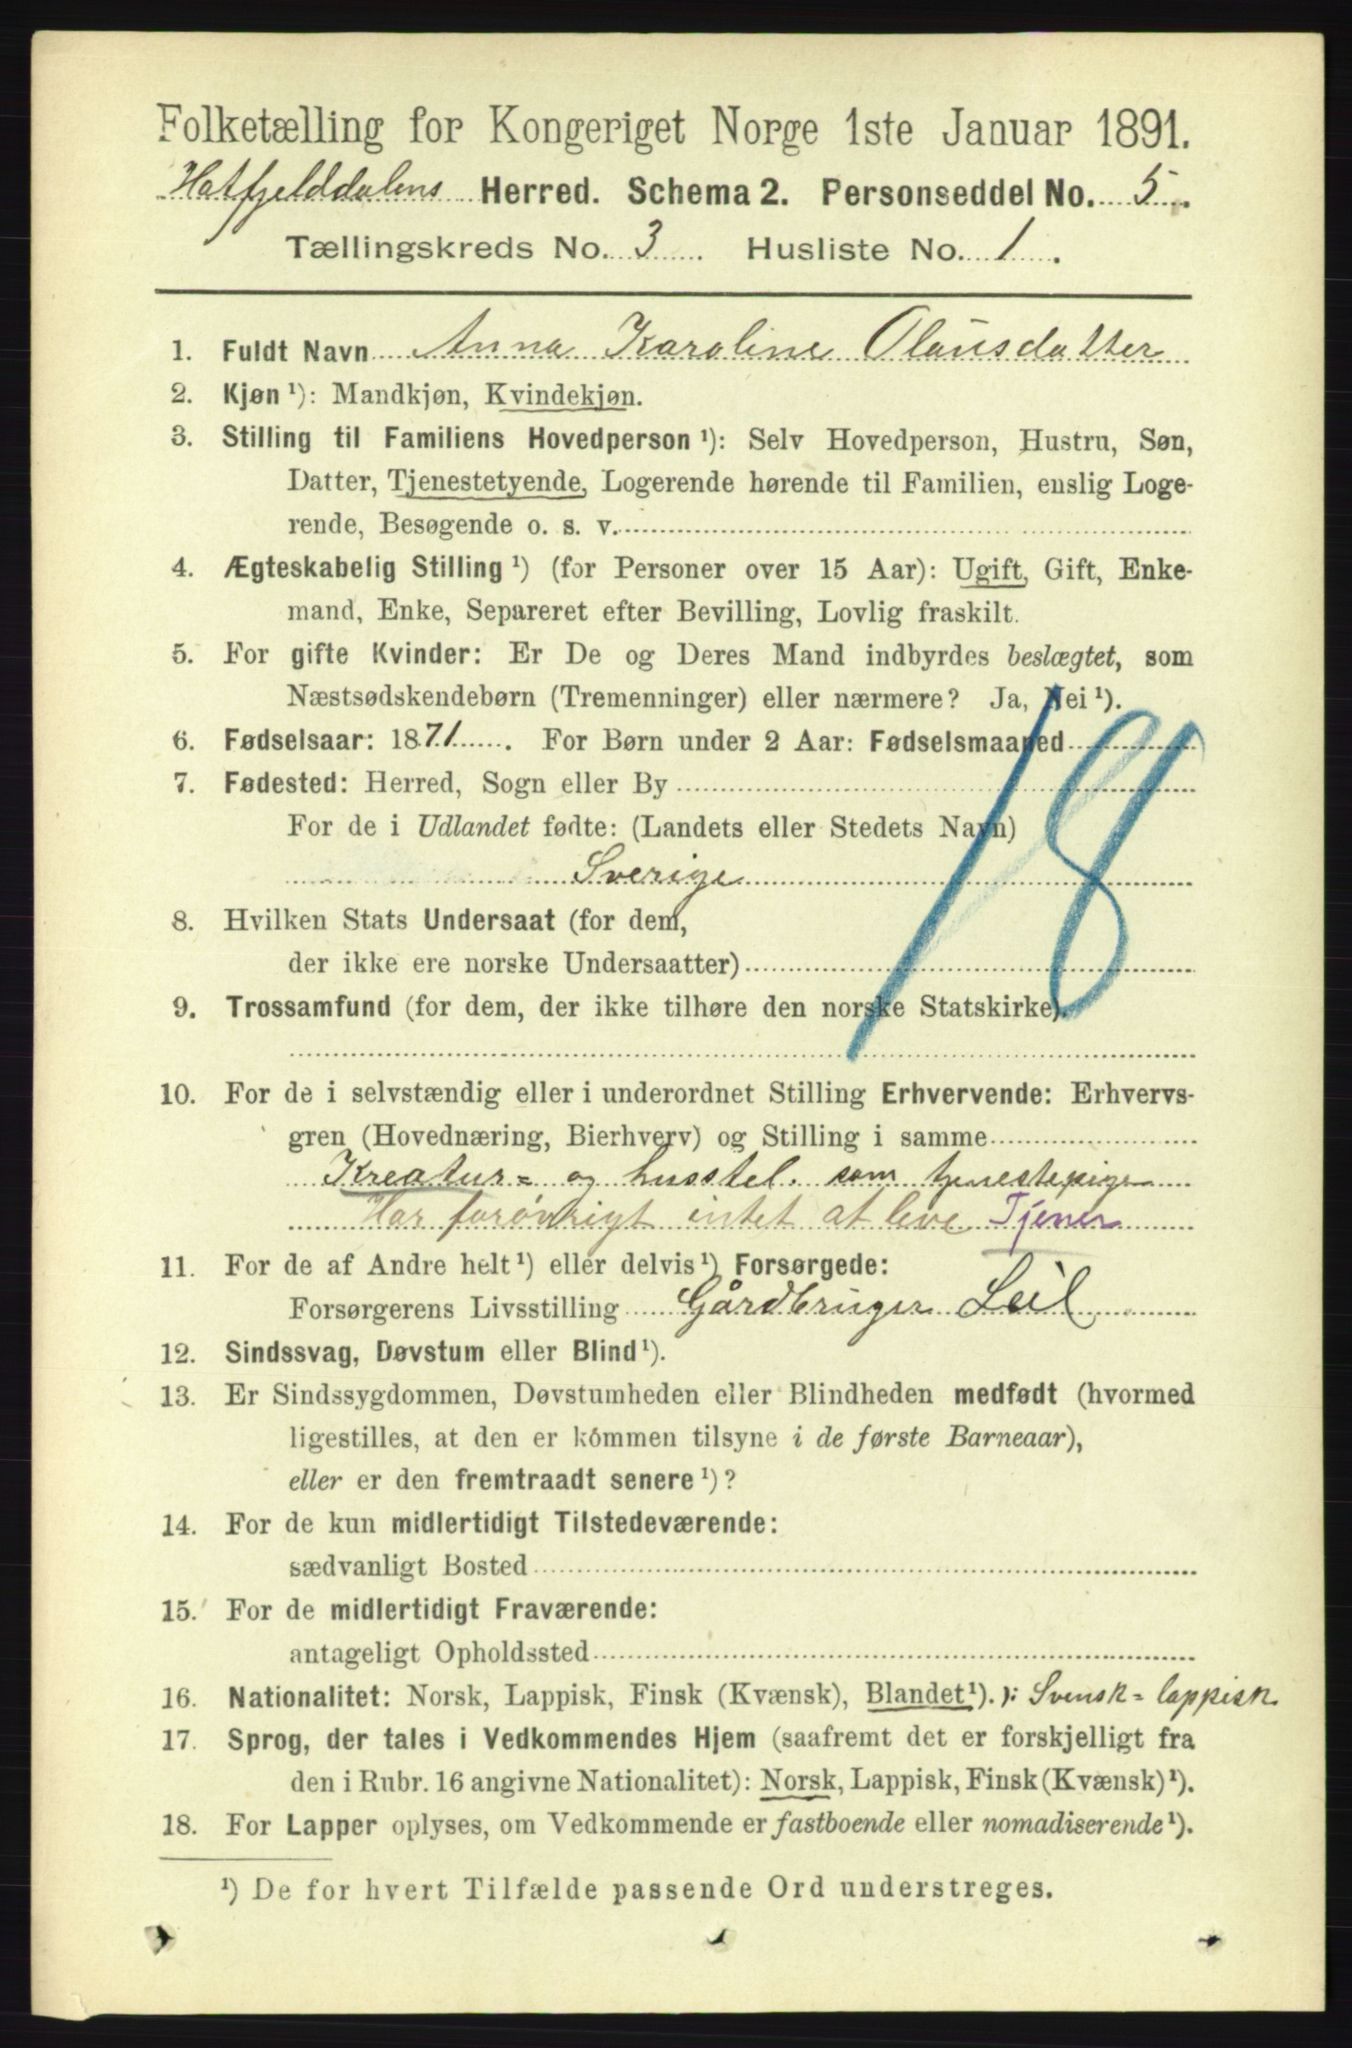 Folketælling for Kongeriget Norge 1ste Januar 1891.
Hatfjelddalens Herred. Schema 2. Personseddel No. 5.
Tællingskreds No. 3 Husliste No. 1.
1. Fuldt Navn Anna Karoline Olausdatter
2. Kjøn ¹): Mandkjøn, Kvindekjøn.
3. Stilling til Familiens Hovedperson ¹): Selv Hovedperson, Hustru, Søn,
Datter, Tjenestetyende, Logerende hørende til Familien, enslig Loge-
rende, Besøgende o. s. v.
4. Ægteskabelig Stilling ¹) (for Personer over 15 Aar): Ugift, Gift, Enke-
mand, Enke, Separeret efter Bevilling, Lovlig fraskilt.
5. For gifte Kvinder: Er De og Deres Mand indbyrdes beslægtet, som
Næstsødskendebørn (Tremenninger) eller nærmere? Ja, Nei ¹).
6. Fødselsaar: 1871. For Børn under 2 Aar: Fødselsmaaned
7. Fødested: Herred, Sogn eller By
For de i Udlandet fødte: (Landets eller Stedets Navn)
Sverige
18
8. Hvilken Stats Undersaat (for dem,
der ikke ere norske Undersaatter)
9. Trossamfund (for dem, der ikke tilhøre den norske Statskirke).
10. For de i selvstændig eller i underordnet Stilling Erhvervende: Erhvervs-
gren (Hovednæring, Bierhverv) og Stilling i samme
Kreatur= og husstel. som tjenestepige
Har forøvrigt intet at leve Tjener
11. For de af Andre helt ¹) eller delvis ¹) Forsørgede:
Forsørgerens Livsstilling Gårdbruger Leil
12. Sindssvag, Døvstum eller Blind ¹).
13. Er Sindssygdommen, Døvstumheden eller Blindheden medfødt (hvormed
ligestilles, at den er kommen tilsyne i de første Barneaar),
eller er den fremtraadt senere ¹)?
14. For de kun midlertidigt Tilstedeværende:
sædvanligt Bosted
15. For de midlertidigt Fraværende:
antageligt Opholdssted
16. Nationalitet: Norsk, Lappisk, Finsk (Kvænsk), Blandet ¹). ): Svensk=lappisk
17. Sprog, der tales i Vedkommendes Hjem (saafremt det er forskjelligt fra
den i Rubr. 16 angivne Nationalitet): Norsk, Lappisk, Finsk (Kvænsk) ¹).
18. For Lapper oplyses, om Vedkommende er fastboende eller nomadiserende ¹).
¹) De for hvert Tilfælde passende Ord understreges.